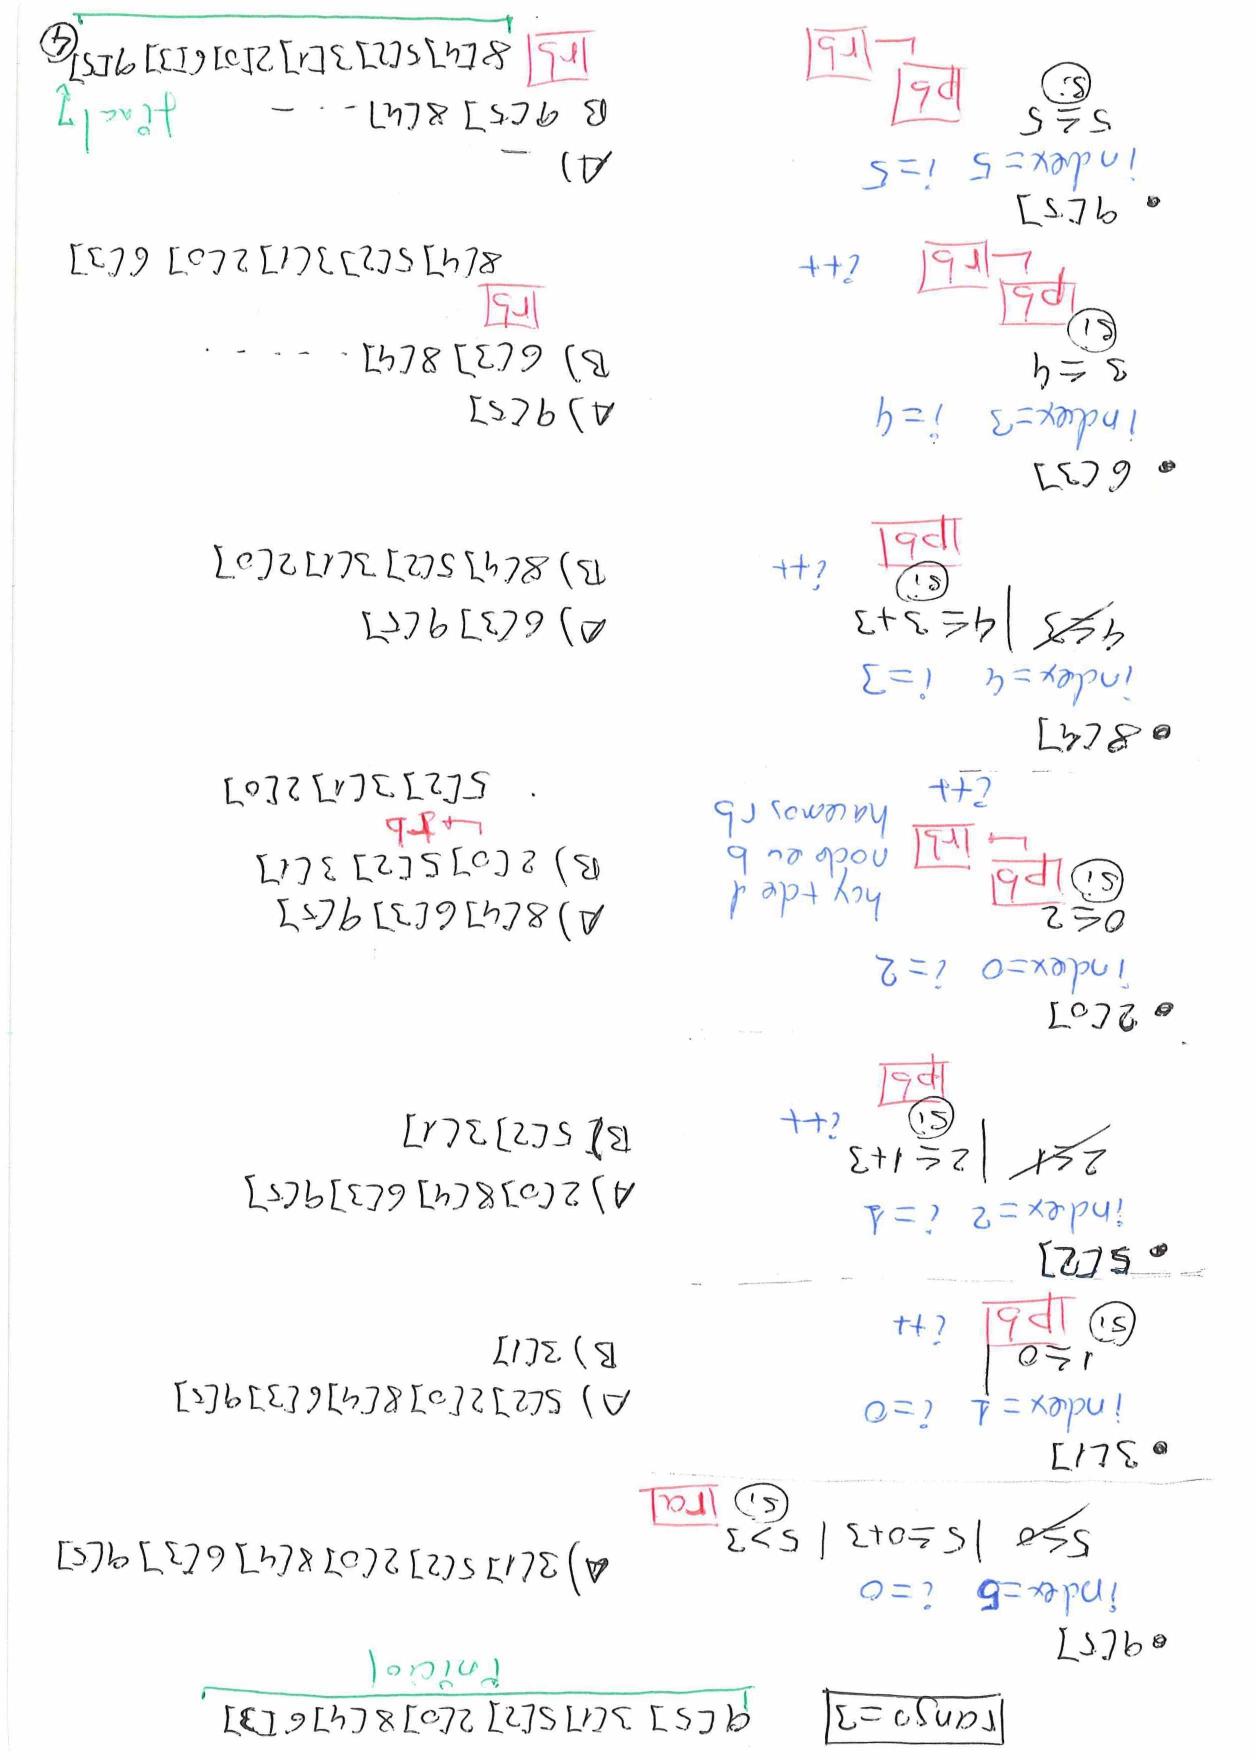 rango=3 9[5] 3[1] 5[2] 2[0] 8[4] 6[3]
inicial
• 9[5]
index=5 i=0
5≤0 | 5≤0+3 | 5>3
si ra
A) 3[1] 5[2] 2[0] 8[4] 6[3] 9[5]
• 3[1]
index=1 i=0
1≤0 |
si pb i++
A) 5[2] 2[0] 8[4] 6[3] 9[5]
B) 3[1]
• 5[2]
index=2 i=1
2≤1 | 2≤1+3
si i++
pb
A) 2[0] 8[4] 6[3] 9[5]
B) 5[2] 3[1]
• 2[0]
index=0 i=2
0≤2
si pb
rb
hay + de 1
nodo en b
hacemos rb
i++
A) 8[4] 6[3] 9[5]
B) 2[0] 5[2] 3[1]
rb
5[2] 3[1] 2[0]
• 8[4]
index=4 i=3
4≤3 | 4≤3+3
si i++
pb
A) 6[3] 9[5]
B) 8[4] 5[2] 3[1] 2[0]
• 6[3]
index=3 i=4
3≤4
si
pb
rb i++
A) 9[5]
B) 6[3] 8[4] - - - - .
rb
8[4] 5[2] 3[1] 2[0] 6[3]
• 9[5]
index=5 i=5
5≤5
si pb
rb
A) _
B 9[5] 8[4] - . -
final
rb 8[4] 5[2] 3[1] 2[0] 6[3] 9[5]
4